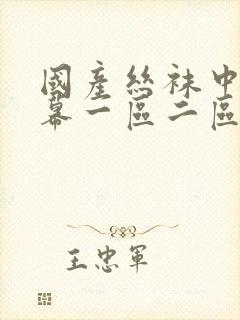 國產絲袜中
幕一區二區
王忠軍